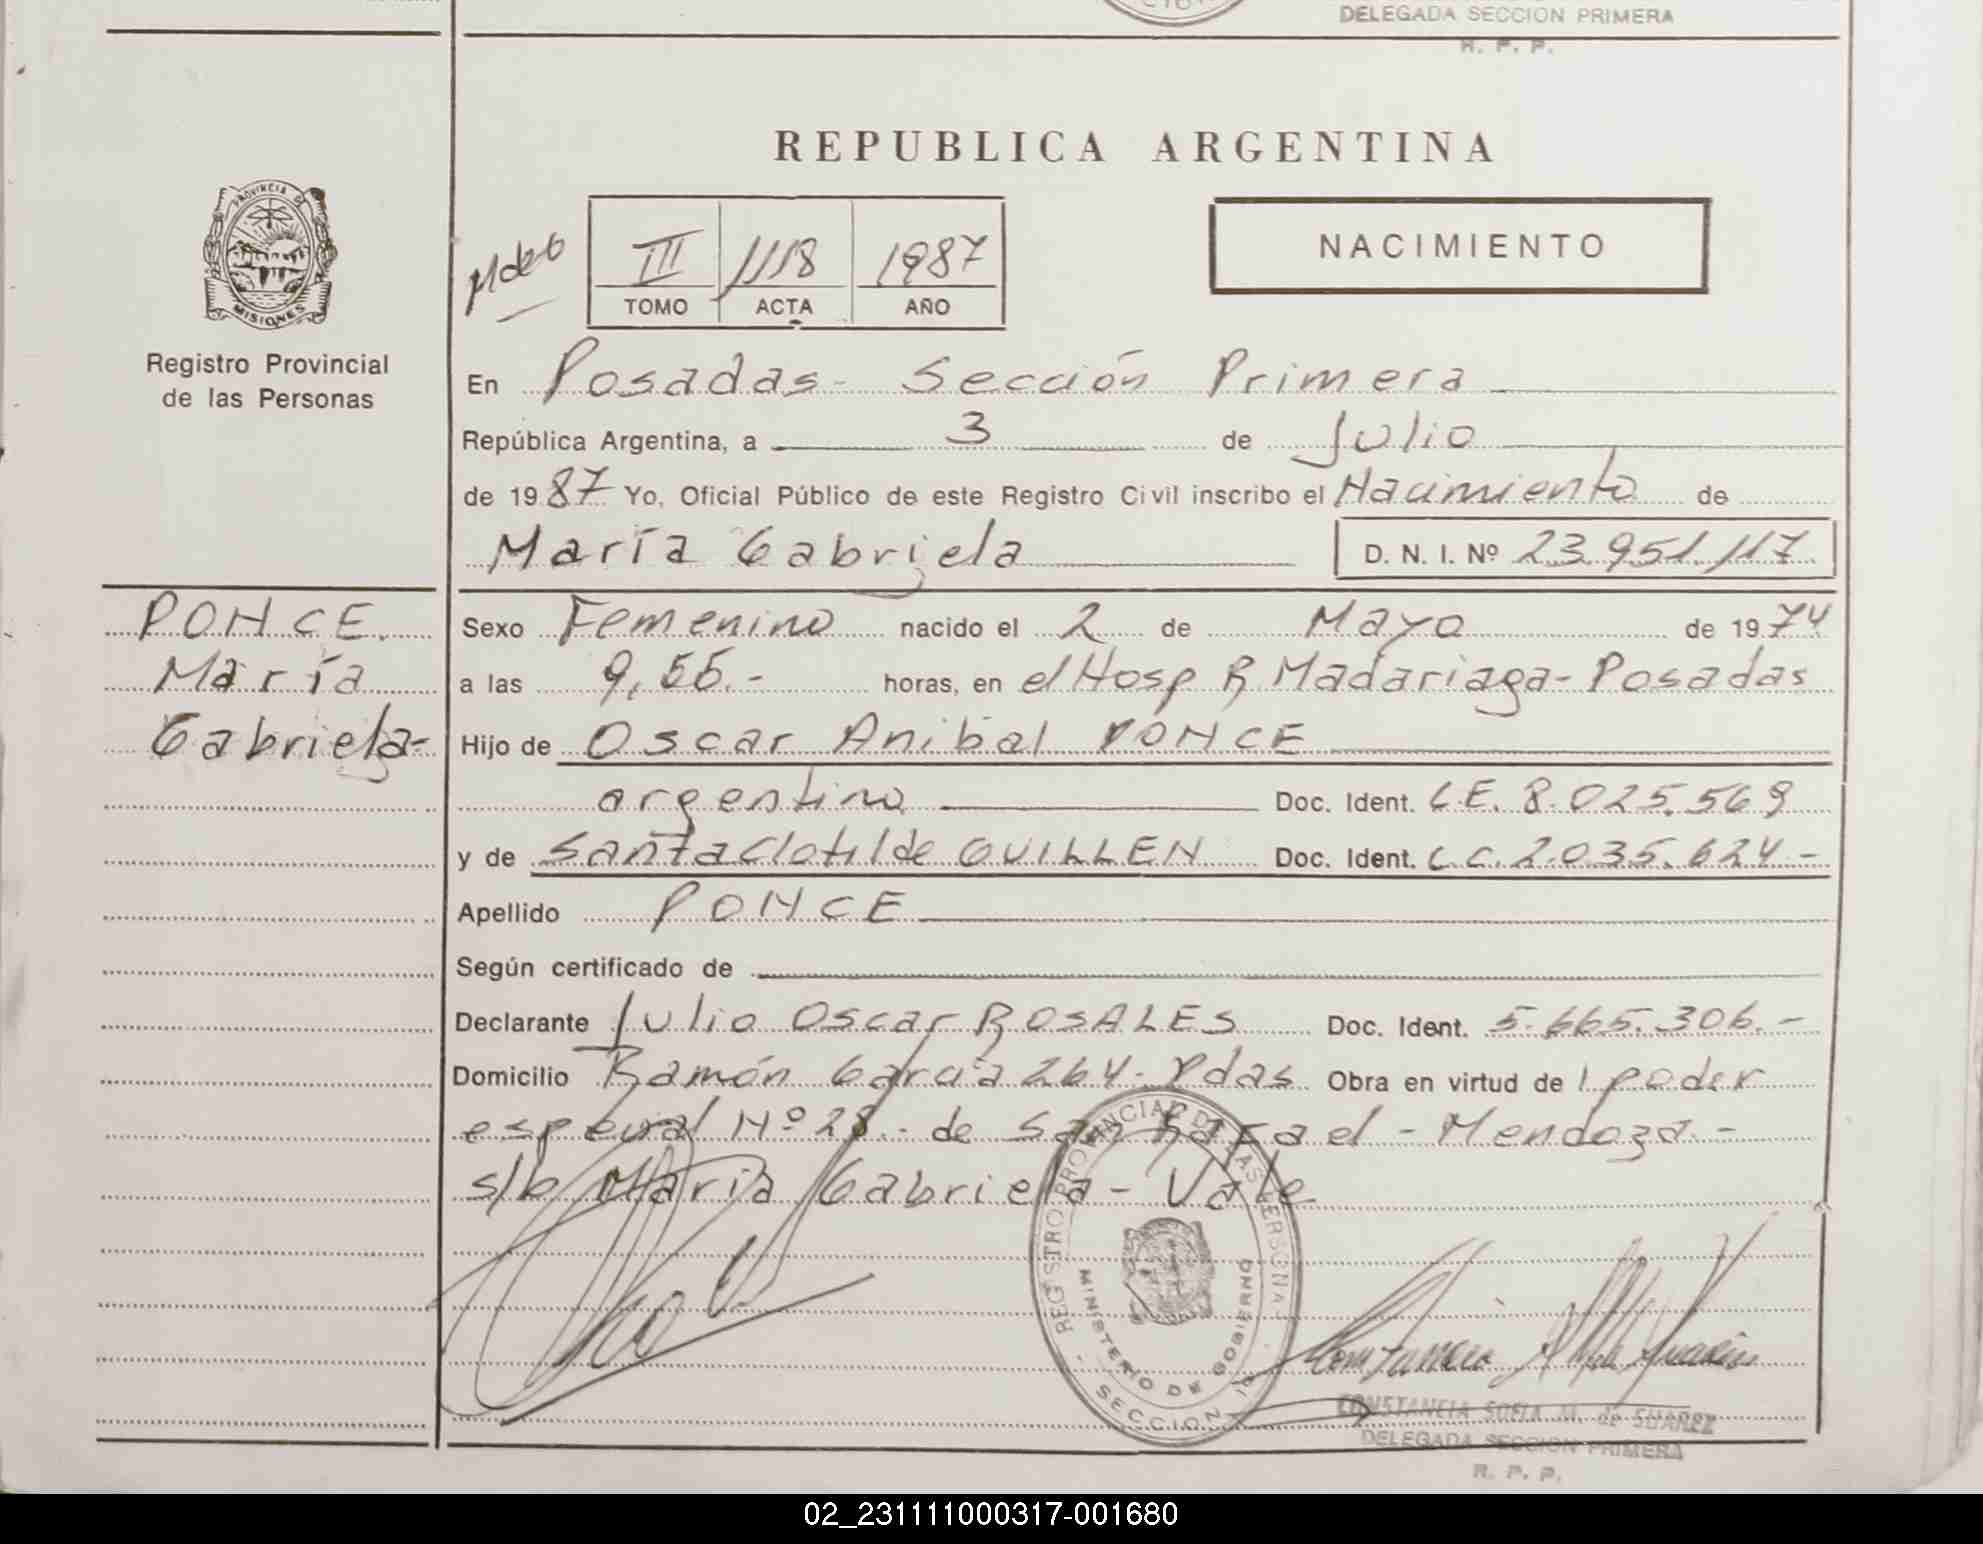 DELEGADA SECCION PRIMERA
R. P. P.
REPUBLICA ARGENTINA
PROVINCIA DE
MISIONES
Registro Provincial
de las Personas
III 1118 1987
TOMO ACTA AÑO
NACIMIENTO
En Posadas - Sección Primera
República Argentina, a 3 de Julio
de 1987 Yo, Oficial Público de este Registro Civil inscribo el Nacimiento de
María Gabriela D. N. I. Nº 23.951.117
PONCE
María
Gabriela-
Sexo Femenino nacido el 2 de Mayo de 1974
a las 9,55.- horas, en el Hosp R Madariaga - Posadas
Hijo de Oscar Anibal PONCE
argentino Doc. Ident. L.E. 8.025.569
y de Santa Clotilde GUILLEN Doc. Ident. L.C. 2.035.624 -
Apellido PONCE
Según certificado de
Declarante Julio Oscar ROSALES Doc. Ident. 5.665.306.-
Domicilio Ramón García 264 - Pdas Obra en virtud de 1 poder
especial Nº 28.- de San Rafael - Mendoza.-
s/b María Gabriela - Vale
REGISTRO PROVINCIAL DE LAS PERSONAS
MINISTERIO DE GOBIERNO
SECCION 1ª
CONSTANCIA SOFIA M. de SUAREZ
DELEGADA SECCION PRIMERA
R. P. P.
02_231111000317-001680